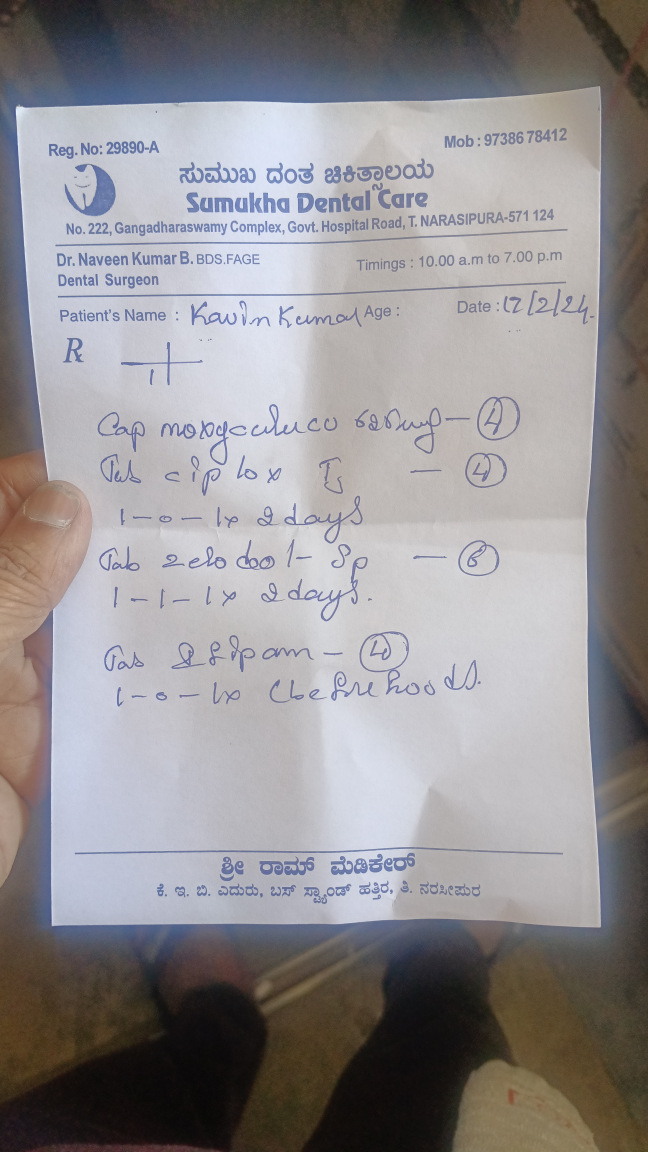 Reg. No: 29890-A
Mob : 97386 78412
ಸುಮುಖ ದಂತ ಚಿಕಿತ್ಸಾಲಯ
Sumukha Dental Care
No. 222, Gangadharaswamy Complex, Govt. Hospital Road, T. NARASIPURA-571 124
Dr. Naveen Kumar B. BDS.FAGE
Timings : 10.00 a.m to 7.00 p.m
Dental Surgeon
Patient's Name : Kavin Kumar Age : Date : 12/2/24
Rx
1
Cap — 4
Tab ciplox — 4
1-0-1x 2 days
Tab zerodol-Sp — 6
1-1-1x 2 days.
Tab — 4
1-0-1x
ಶ್ರೀ ರಾಮ್ ಮೆಡಿಕೇರ್
ಕೆ. ಇ. ಬಿ. ಎದುರು, ಬಸ್ ಸ್ಟ್ಯಾಂಡ್ ಹತ್ತಿರ, ತಿ. ನರಸೀಪುರ